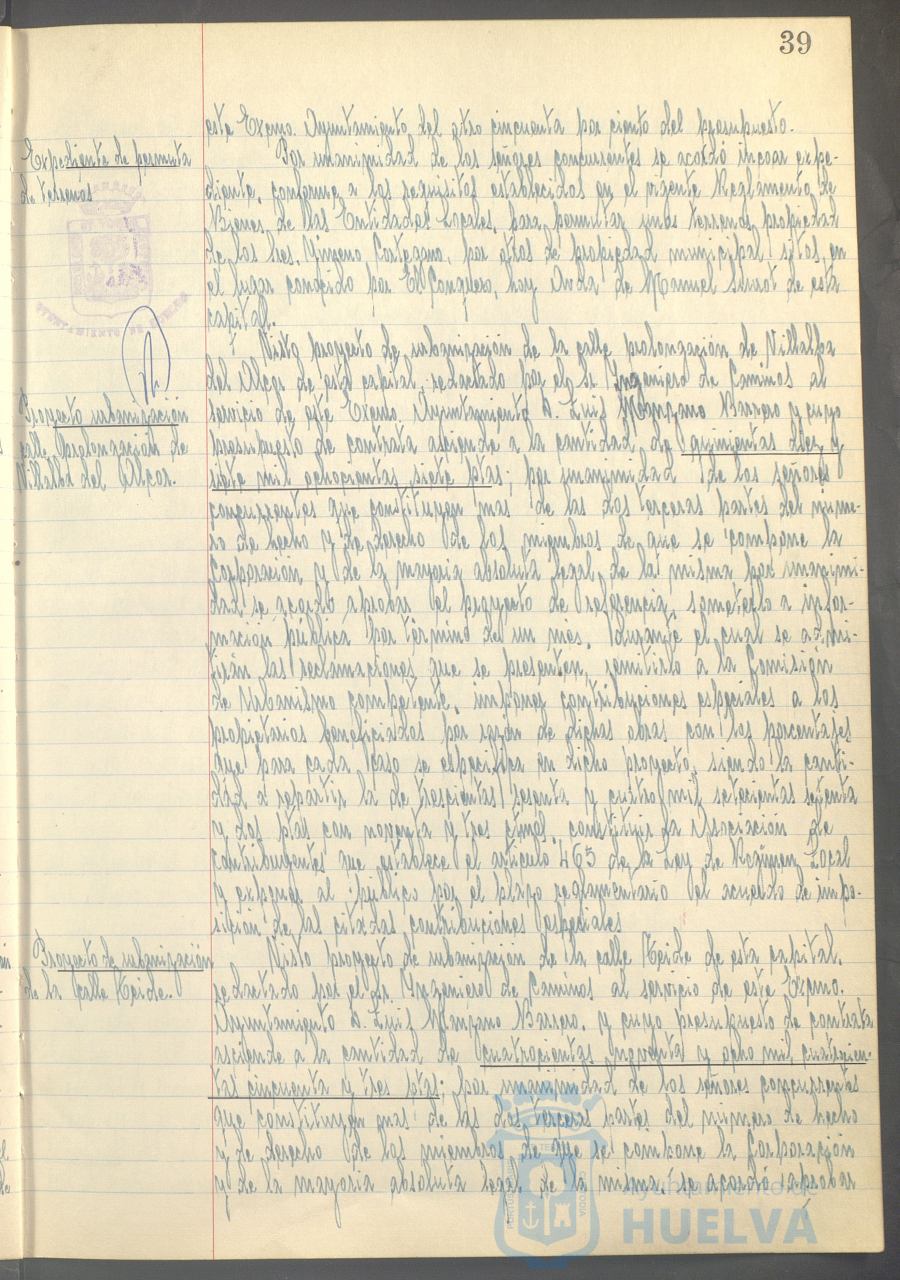 39
este Excmo. Ayuntamiento, del otro cincuenta por ciento del presupuesto.
Expediente de permuta
de terrenos
Por unanimidad de los señores concurrentes se acordó incoar expe-
diente, conforme a los requisitos establecidos en el vigente Reglamento de
Bienes de las Entidades Locales, para permutar unos terrenos propiedad
de los Sres. Jimeno Cortegano, por otros de propiedad municipal sitos en
el lugar conocido por El Conquero, hoy Avda. de Manuel Siurot de esta
capital.
Proyecto urbanización
calle prolongación de
Villalba del Alcor.
Visto proyecto de urbanización de la calle prolongación de Villalba
del Alcor de esta capital, redactado por el Sr. Ingeniero de Caminos al
servicio de este Excmo. Ayuntamiento D. Luis Manzano Barrero y cuyo
presupuesto de contrata asciende a la cantidad de quinientas diez y
siete mil ochocientas siete ptas; por unanimidad de los señores
concurrentes que constituyen mas de las dos terceras partes del núme-
ro de hecho y de derecho de los miembros de que se compone la
Corporación y de la mayoria absoluta legal de la misma por unanimi-
dad se acordó aprobar el proyecto de referencia, someterlo a infor-
mación pública por término de un mes, durante el cual se admi-
tirán las reclamaciones que se presenten, remitirlo a la Comisión
de Urbanismo competente, imponer contribuciones especiales a los
propietarios beneficiados por razón de dichas obras con los porcentajes
que para cada caso se especifica en dicho proyecto, siendo la canti-
dad a repartir la de trescientas sesenta y cuatro mil setecientas setenta
y dos ptas con noventa y tres ctmos, constituir la Asociación de
contribuyentes que establece el artículo 465 de la Ley de Régimen Local
y exponer al público por el plazo reglamentario del acuerdo de impo-
sición de las citadas contribuciones especiales
Proyecto de urbanización
de la calle Teide.
Visto proyecto de urbanización de la calle Teide de esta capital,
redactado por el Sr. Ingeniero de Caminos al servicio de este Excmo.
Ayuntamiento D. Luis Manzano Barrero, y cuyo presupuesto de contrata
asciende a la cantidad de cuatrocientas noventa y ocho mil cuatrocien-
tas cincuenta y tres ptas; por unanimidad de los señores concurrentes
que constituyen mas de las dos terceras partes del número de hecho
y de derecho de los miembros de que se compone la Corporación
y de la mayoria absoluta legal de la misma, se acordó aprobar
Ayuntamiento de
HUELVA